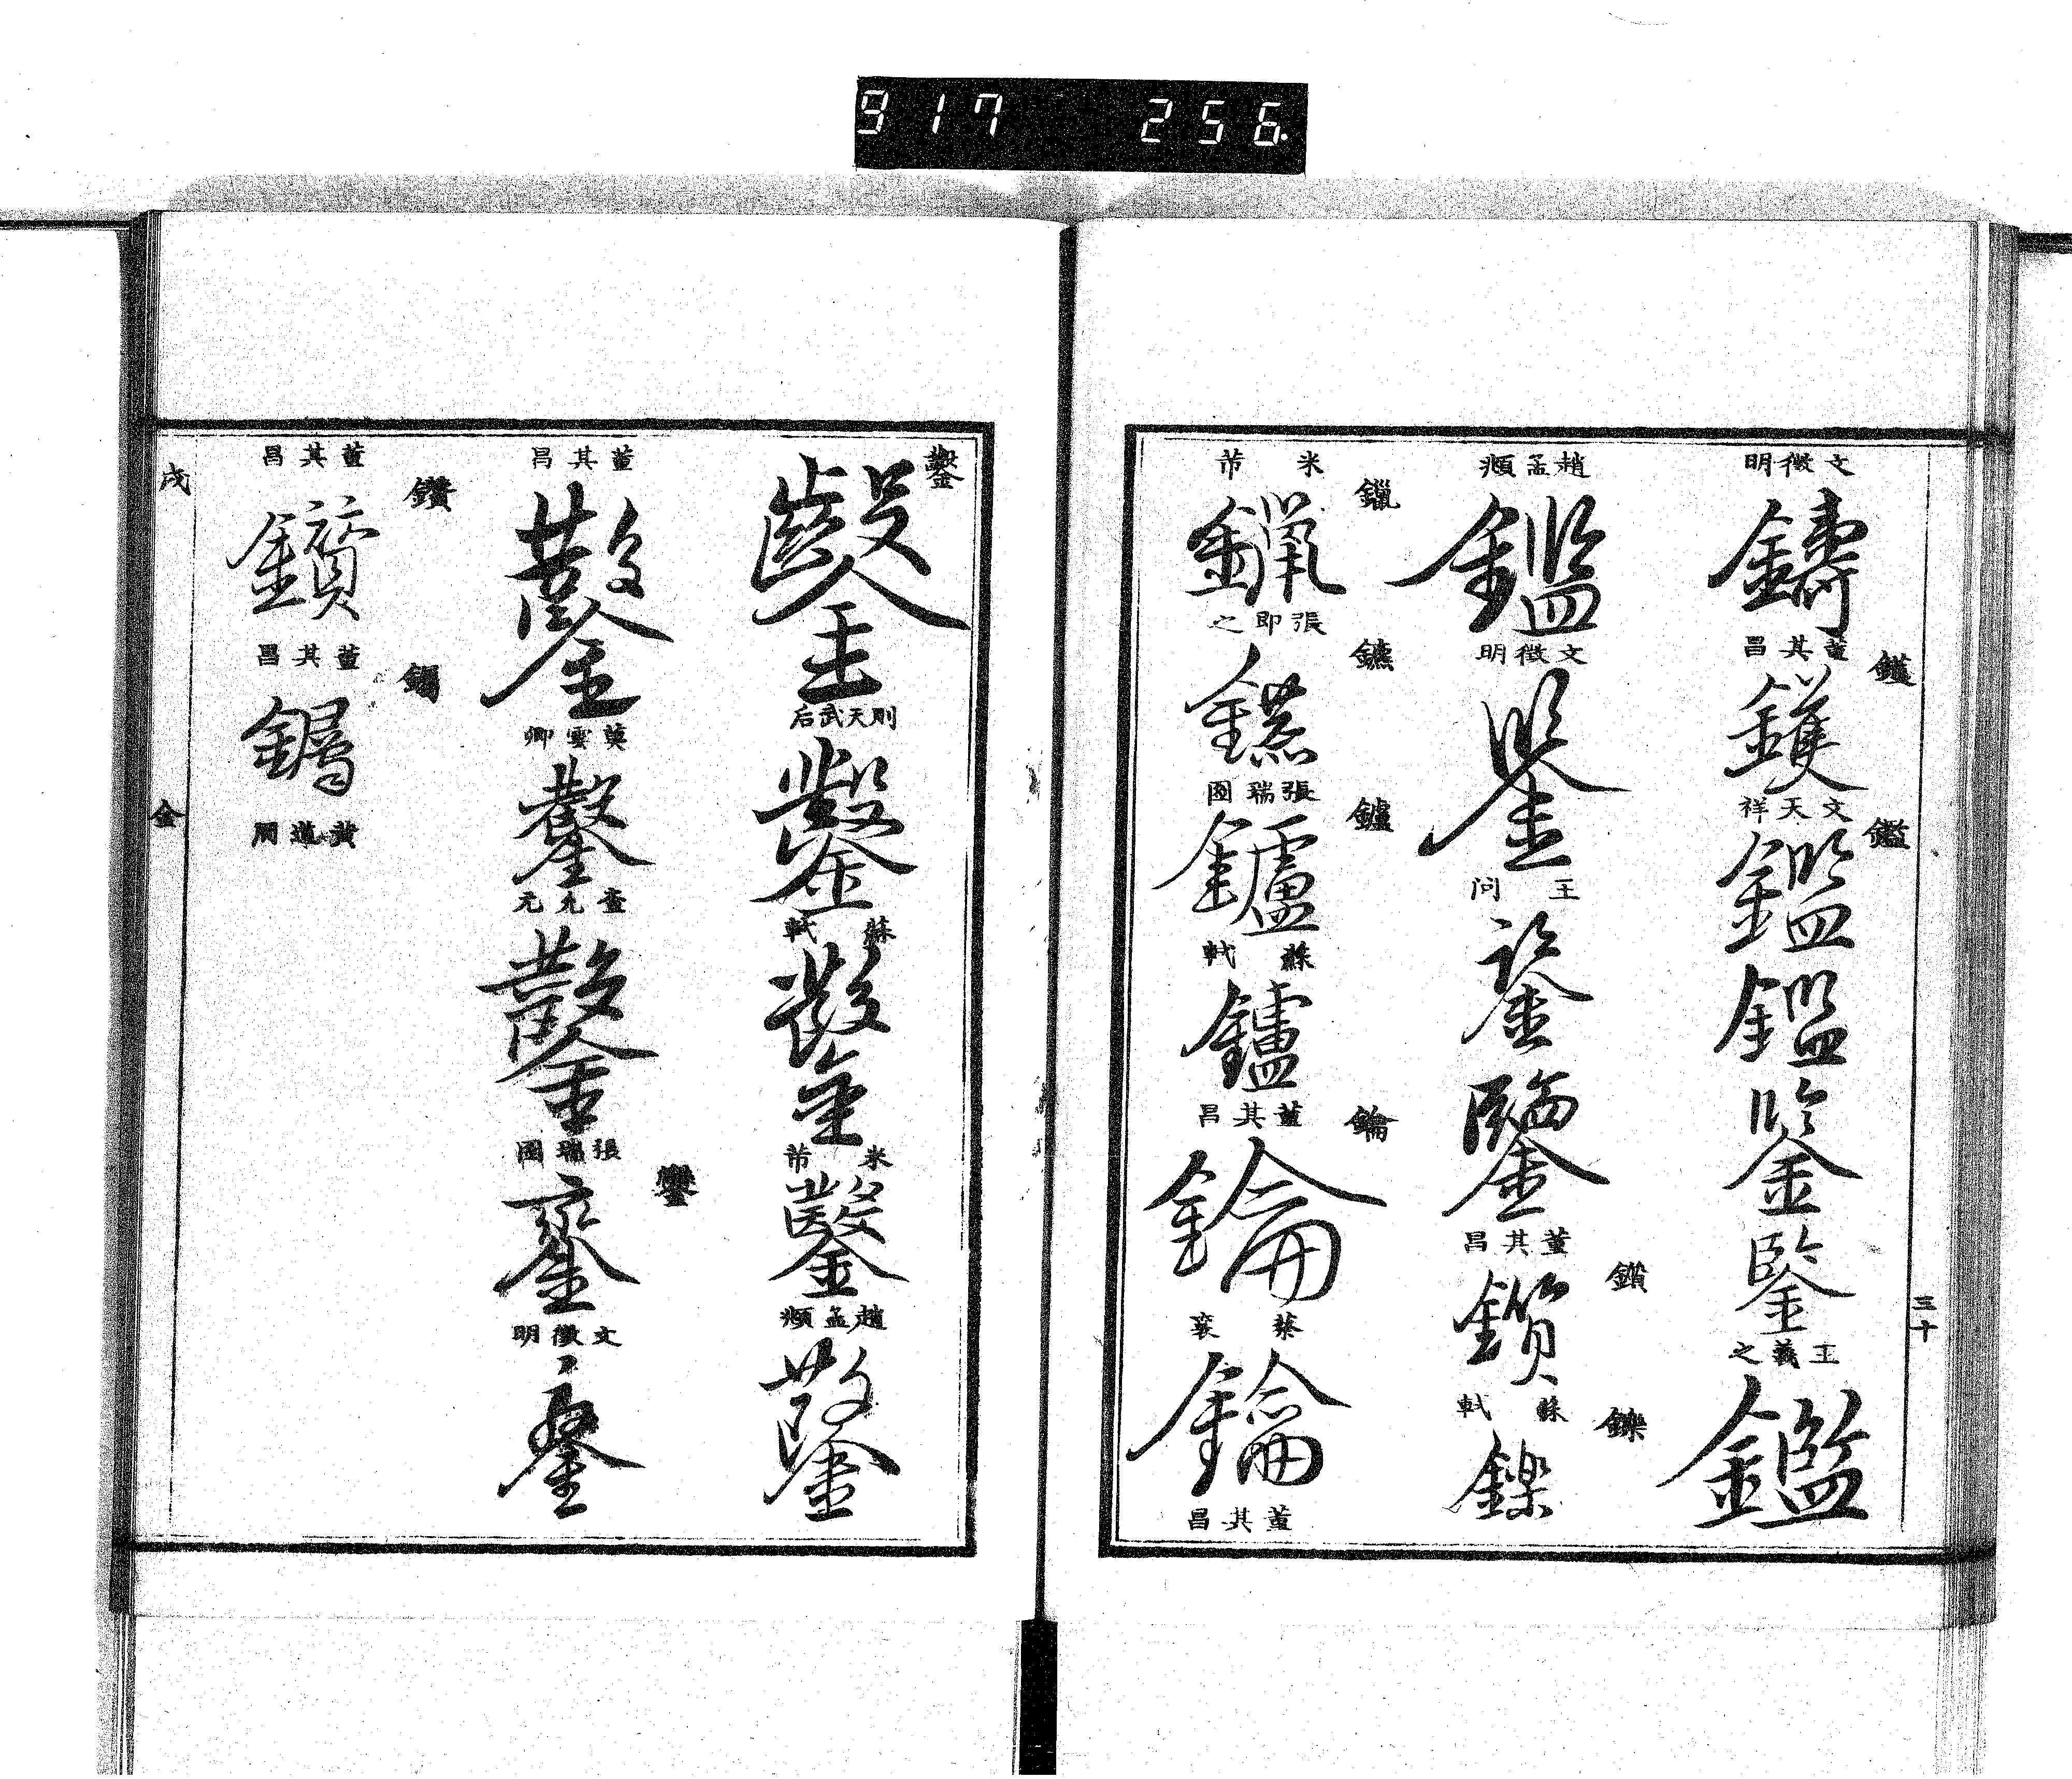 917 256
鑄
文徵明
鑊
鑊
董其昌
鑑
鑑
文天祥
鑑
鑒
鑒
王羲之
鑑
趙孟頫
鑑
文徵明
鑒
王問
鑒
鑒
董其昌
鑕
鑕
蘇軾
鑠
鑠
米芾
鑞
鑞
張即之
鑣
鑣
張瑞圖
鑪
鑪
蘇軾
鑪
董其昌
鑰
鑰
蔡襄
鑰
董其昌
三十
鑿
鑿
則天武后
鑿
蘇軾
鑿
米芾
鑿
趙孟頫
鑿
董其昌
鑿
莫雲卿
鑿
查允元
鑿
張瑞圖
鑾
鑾
文徵明
鑾
董其昌
鑽
鑽
董其昌
钃
钃
黃道周
戌
金